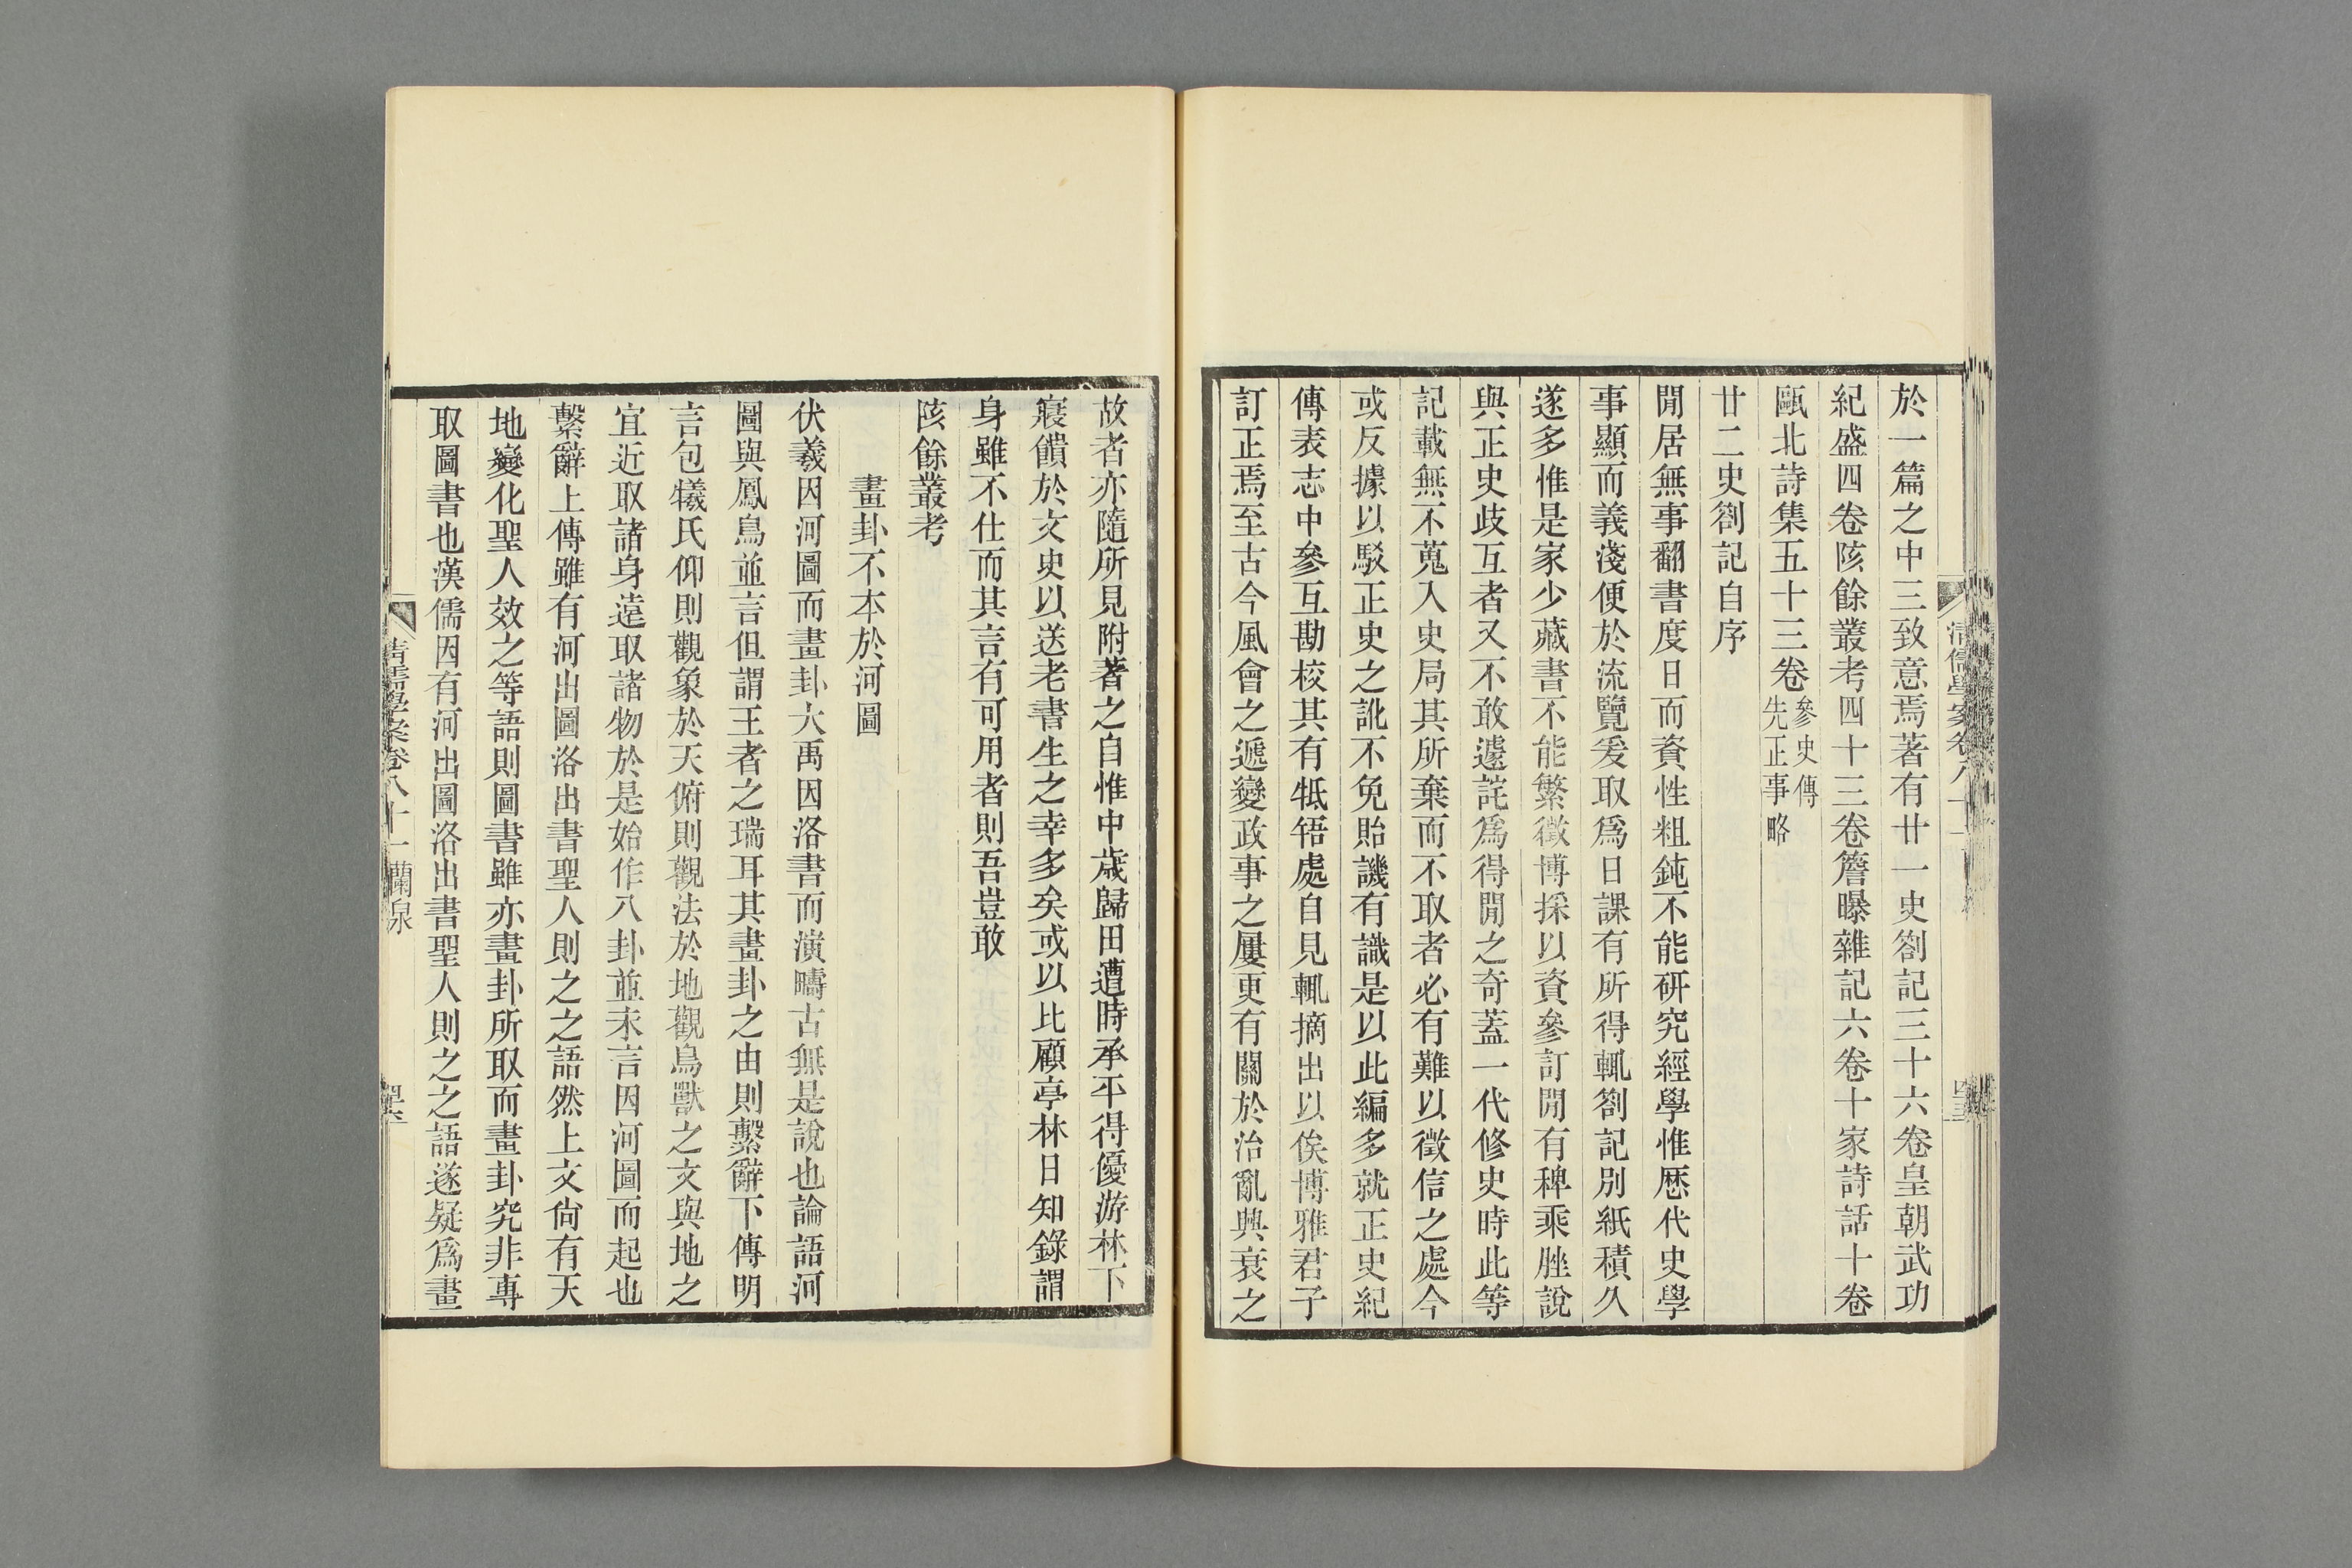 於一篇之中三致意焉著有廿一史劄記三十六卷皇朝武功
紀盛四卷陔餘叢考四十三卷簷曝雜記六卷十家詩話十卷
甌北詩集五十三卷參史傳先正事略
廿二史劄記自序
閒居無事翻書度日而資性粗鈍不能研究經學惟厯代史學
事顯而義淺便於流覽爰取爲日課有所得輒劄記別紙積久
遂多惟是家少藏書不能繁徵博採以資參訂閒有稗乘脞說
與正史歧互者又不敢遽詫爲得閒之奇蓋一代修史時此等
記載無不蒐入史局其所棄而不取者必有難以徵信之處今
或反據以駁正史之訛不免貽譏有識是以此編多就正史紀
傳表志中參互勘校其有牴牾處自見輒摘出以俟博雅君子
訂正焉至古今風會之遞變政事之屢更有關於治亂興衰之
清儒學案卷八十一
故者亦隨所見附著之自惟中歲歸田遭時承平得優游林下
寢饋於文史以送老書生之幸多矣或以比顧亭林日知錄謂
身雖不仕而其言有可用者則吾豈敢
陔餘叢考
畫卦不本於河圖
伏羲因河圖而畫卦大禹因洛書而演疇古無是說也論語河
圖與鳳鳥並言但謂王者之瑞耳其畫卦之由則繫辭下傳明
言包犧氏仰則觀象於天俯則觀法於地觀鳥獸之文與地之
宜近取諸身遠取諸物於是始作八卦並未言因河圖而起也
繫辭上傳雖有河出圖洛出書聖人則之之語然上文尙有天
地變化聖人效之等語則圖書雖亦畫卦所取而畫卦究非專
取圖書也漢儒因有河出圖洛出書聖人則之之語遂疑爲畫
清儒學案卷八十一 蘭泉